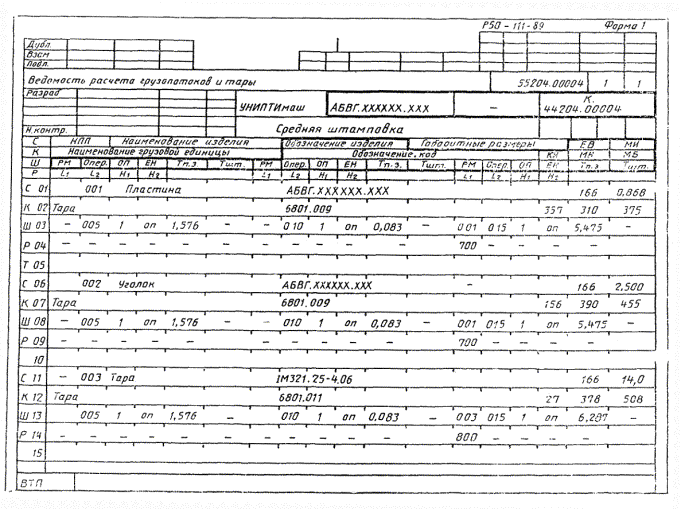 Р50-111-89 Форма 1
Дубл.
Взам
Подл.
Ведомость расчета грузопотоков и тары 55204.00004 1 1
Разраб УНИПТИмаш АБВГ.ХХХХХХ.ХХХ – К. 44204.00004
Н.контр. Средняя штамповка
С НПП Наименование изделия Обозначение изделия Габаритные размеры ЕВ МИ
К Наименование грузовой единицы Обозначение, код КИ МК МБ
Ш РМ Опер. ОП ЕН Тп.з. Тшт. РМ Опер. ОП ЕН Тп.з. Тшт. РМ Опер. ОП ЕН Тп.з Тшт.
Р L1 L2 H1 H2 L1 L2 H1 H2 L1 L2 H1 H2
С 01 001 Пластина АБВГ.ХХХХХХ.ХХХ 166 0,868
К 02 Тара 6801.009 357 310 375
Ш 03 – 005 1 оп 1,576 – – 010 1 оп 0,083 – 001 015 1 оп 5,475 –
Р 04 – – – – – – – – – – – – 700 – – – – –
Т 05
С 06 002 Уголок АБВГ.ХХХХХХ.ХХХ – 166 2,500
К 07 Тара 6801.009 156 390 455
Ш 08 – 005 1 оп 1,576 – – 010 1 оп 0,083 – 001 015 1 оп 5,475 –
Р 09 – – – – – – – – – – – – 700 – – – – –
10
С 11 – 003 Тара 1М321.25-4.06 166 14,0
К 12 Тара 6801.011 27 378 508
Ш 13 005 1 оп 1,576 – 010 1 оп 0,083 – 003 015 1 оп 6,287 –
Р 14 – – – – – – – – – – – – 800 – – – – –
15
ВТП